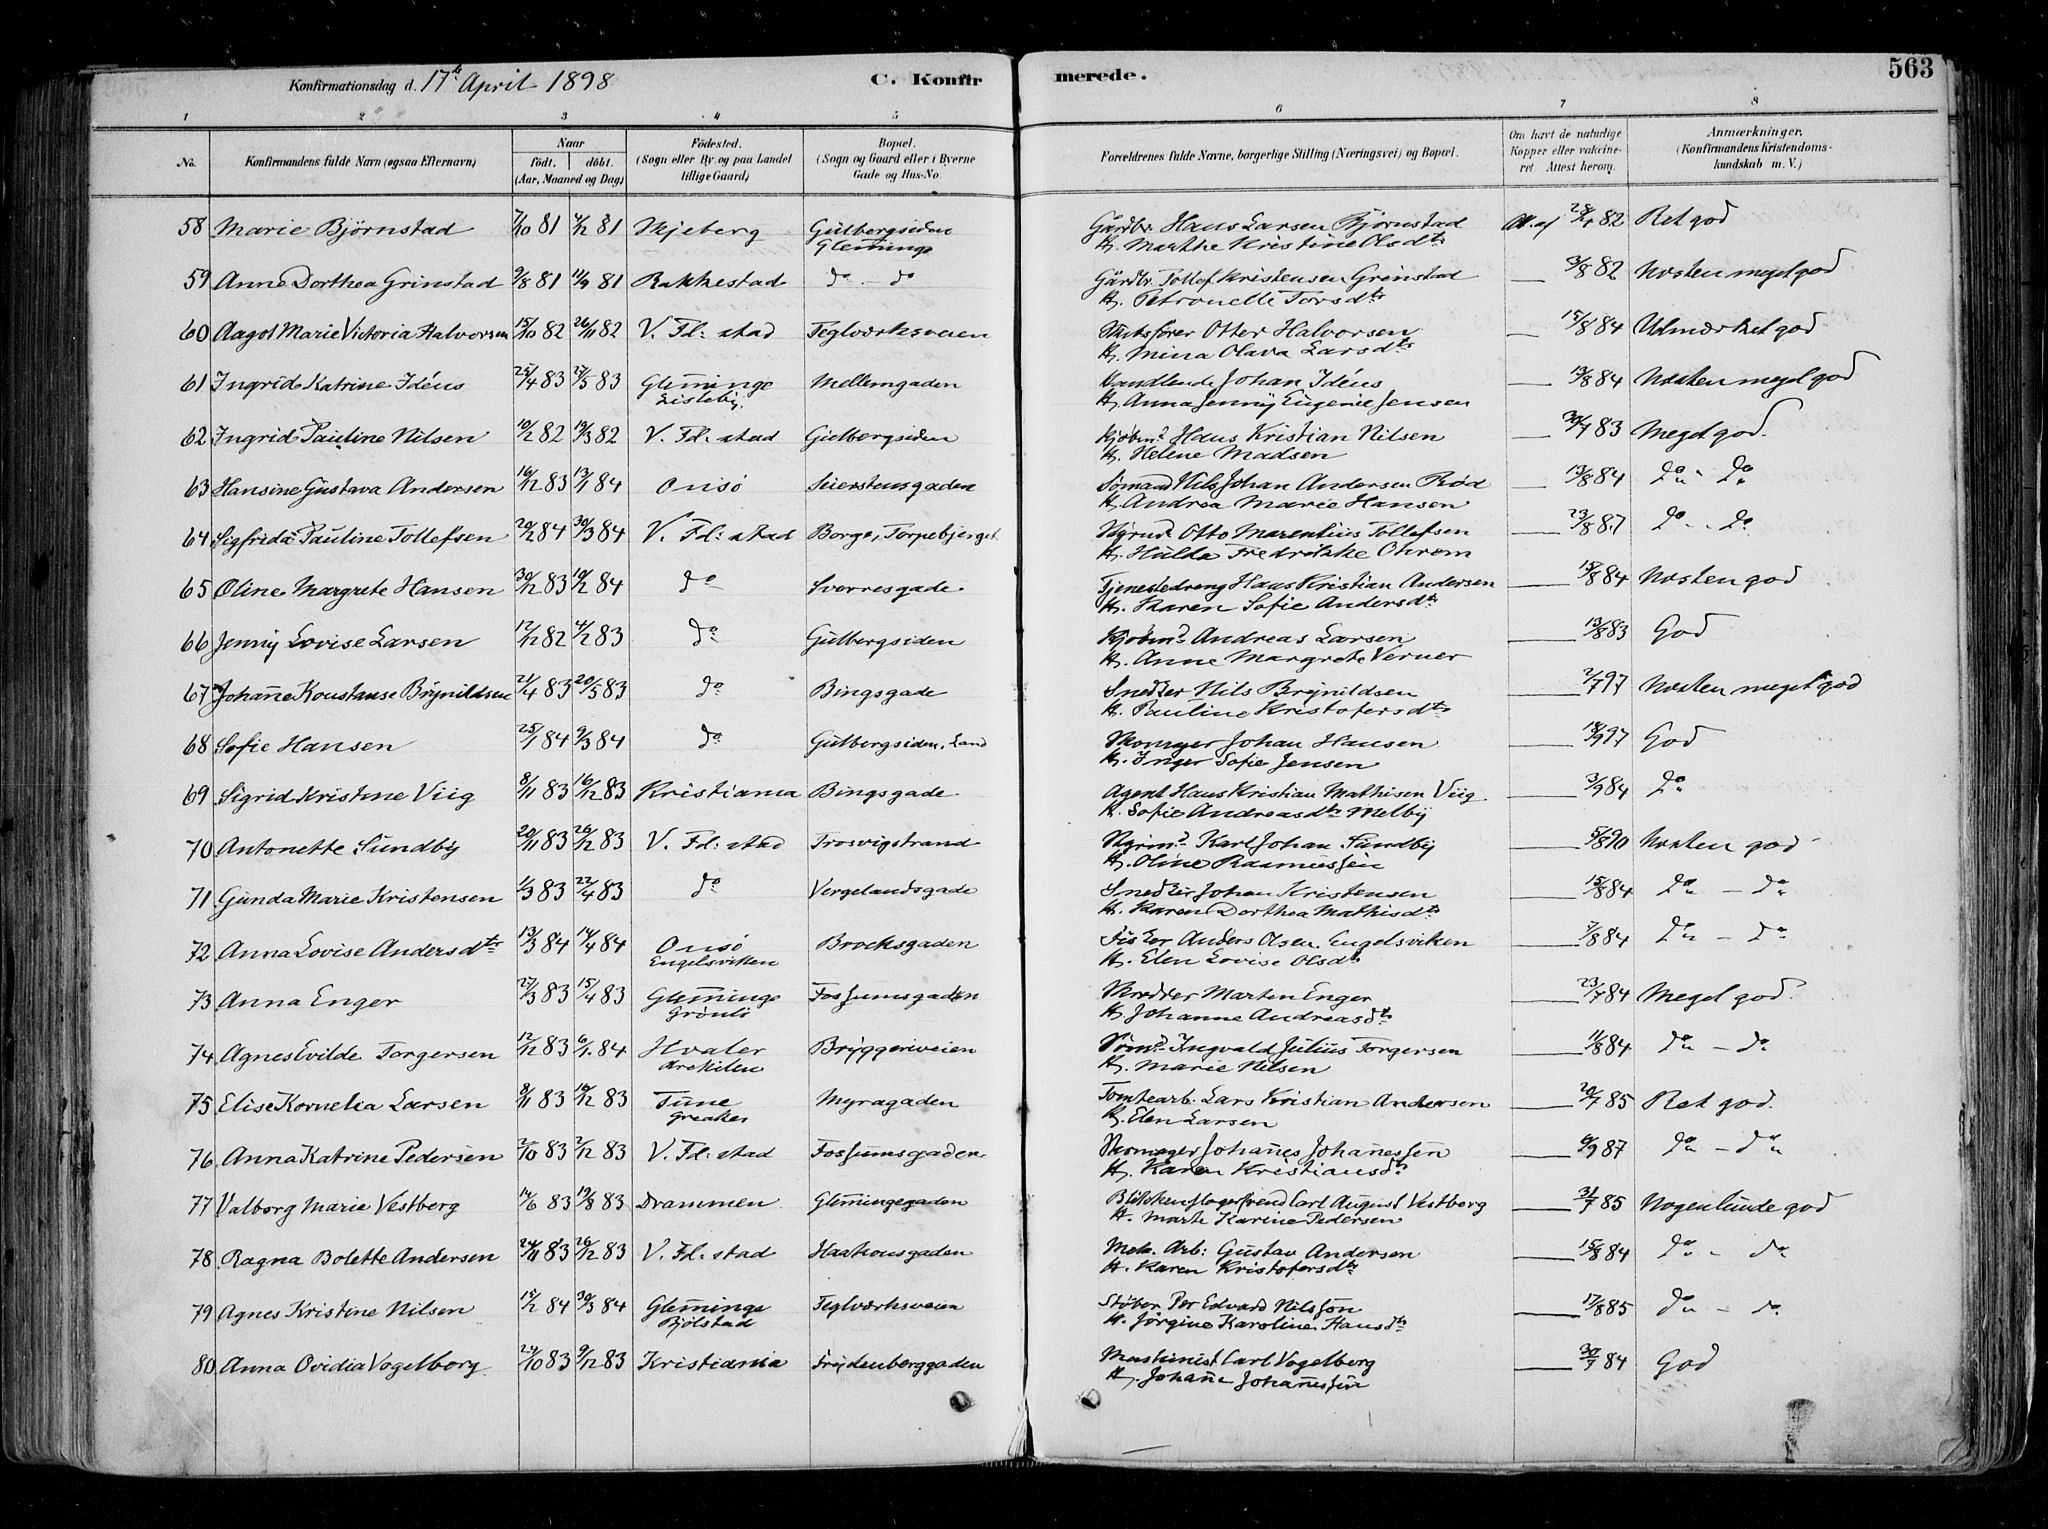 Konfirmationsdag d. 17de April 1898
C. Konfirmerede.
563
1 2 3 4 5 6 7 8
No. Konfirmandens fulde Navn (ogsaa Efternavn) Naar født. døbt. (Aar, Maaned og Dag) Fødested. (Sogn eller By og paa Landet tillige Gaard) Bopæl. (Sogn og Gaard eller i Byerne Gade og Hus-No. Forældrenes fulde Navne, borgerlige Stilling (Næringsvei) og Bopæl. Om havt de naturlige Kopper eller vaccineret Attest herom. Anmærkninger. (Konfirmandens Kristendomskundskab m. V.)
58 Marie Bjørnstad 7/10 81 4/12 81 Skjeberg Gulbergsiden Gardbr. Hans Larsen Bjørnstad At. af 28/4 82 Ret god
Glemminge H. Marthe Kristine Olsdtr
59 Anne Dorthea Grinstad 9/8 81 11/9 81 Rakkestad do - do Gårdbr. Tollef Kristensen Grinstad — 3/8 82 Næsten meget god
H. Petronelle Torsdtr
60 Aagot Marie Victoria Halvorsen 15/10 82 26/11 82 V. Fd:stad Teglværksveien Skibsfører Otter Halvorsen — 15/8 84 Udmærket god
H. Mina Olava Larsdtr
61 Ingrid Katrine Idéus 25/4 83 27/5 83 Glemminge Mellemgaden Handlende Johan Idéus — 13/8 84 Næsten meget god
Lisleby. H. Anna Jenny Eugenie Jensen
62 Ingrid Pauline Nilsen 10/2 82 19/3 82 V. Fd:stad Gulbergsiden Kjøbmd Hans Kristian Nilsen — 30/7 83 Meget god.
H. Helene Madsen
63 Hansine Gustava Andersen 16/12 83 13/1 84 Onsø Seierstensgaden Sømand Nils Johan Andersen Rød — 13/8 84 do - do
H. Andrea Marie Hansen
64 Sigfrida Pauline Tollefsen 20/2 84 30/3 84 V. Fd:stad Borge, Torpebjerget Otto Marentius Tollefsen — 23/8 87 do - do
H. Hulda Fredrikke Ohrom
65 Oline Margrete Hansen 30/12 83 10/2 84 do Sverresgade Tjenestedreng Hans Kristian Andersen — 15/8 84 Næsten god
H. Karen Sofie Andersdtr
66 Jenny Lovise Larsen 12/12 82 4/2 83 do Gulbergsiden Kjøbmd Andreas Larsen — 13/8 83 God
H. Anne Margrete Verner
67 Johanne Konstanse Brynildsen 21/4 83 20/5 83 do Bingsgade Snedker Nils Brynildsen — 2/7 97 Næsten meget god
H. Pauline Kristofersdtr
68 Sofie Hansen 25/1 84 9/3 84 do Gulbergsiden, Land Skomager Johan Hansen — 18/9 97 God
H. Inger Sofie Jensen
69 Sigrid Kristine Viig 8/11 83 16/12 83 Kristiania Bingsgade Agent Hans Kristian Mathisen Viig — 3/9 84 do
H. Sofie Andreasdtr Melby
70 Antonette Sundby 20/11 83 26/12 83 V. Fd:stad Trosvigstrand Karl Johan Sundby — 5/8 90 Næsten god
H. Oline Rasmussen
71 Gunda Marie Kristensen 1/3 83 22/4 83 do Vergelandsgade Snedker Johan Kristensen — 15/8 84 do - do
H. Karen Dorthea Mathisdtr
72 Anna Lovise Andersdtr 13/3 84 14/4 84 Onsø Brochsgaden Fisker Anders Olsen Engelsviken — 7/8 84 do - do
Engelsviken H. Elen Lovise Olsdtr
73 Anna Enger 27/3 83 15/4 83 Glemminge Fossumsgaden Skredder Marten Enger — 23/7 84 Meget god.
Grønli H. Johanne Andreasdtr
74 Agnes Evilde Torgersen 12/12 83 6/1 84 Hvaler Bryggeriveien Sømd Ingvald Julius Torgersen — 11/8 84 do - do
Arekilen H. Marie Nilsen
75 Elise Kornelia Larsen 8/11 83 16/12 83 Tune Myragaden Tomtearb. Lars Kristian Andersen — 20/7 85 Ret god.
Greaker H. Elen Larsen
76 Anna Katrine Pedersen 2/10 83 2/12 83 V. Fd:stad Fossumsgaden Skomager Johanes Johanessen — 9/9 87 do - do
H. Karen Kristiansdtr
77 Valborg Marie Vestberg 14/6 83 19/8 83 Drammen Glemmingegaden Blikkenslagersvend Carl August Vestberg — 31/7 85 Nogenlunde god
H. Marte Karine Pedersen
78 Ragna Bolette Andersen 24/11 83 26/12 83 V. Fd:stad Haakonsgaden Mek. Arb: Gustav Andersen — 15/8 84 do - do
H. Karen Kristofersdtr
79 Agnes Kristine Nilsen 15/2 84 30/3 84 Glemminge Teglværksveien Støber Per Edvard Nilsson — 17/8 85 do - do
Bjølstad H. Jørgine Karoline Hansdtr
80 Anna Ovidia Vogelborg 24/10 83 9/12 83 Kristiania Frydenberggaden Maskinist Carl Vogelborg — 30/7 84 God
H. Johane Johanessen